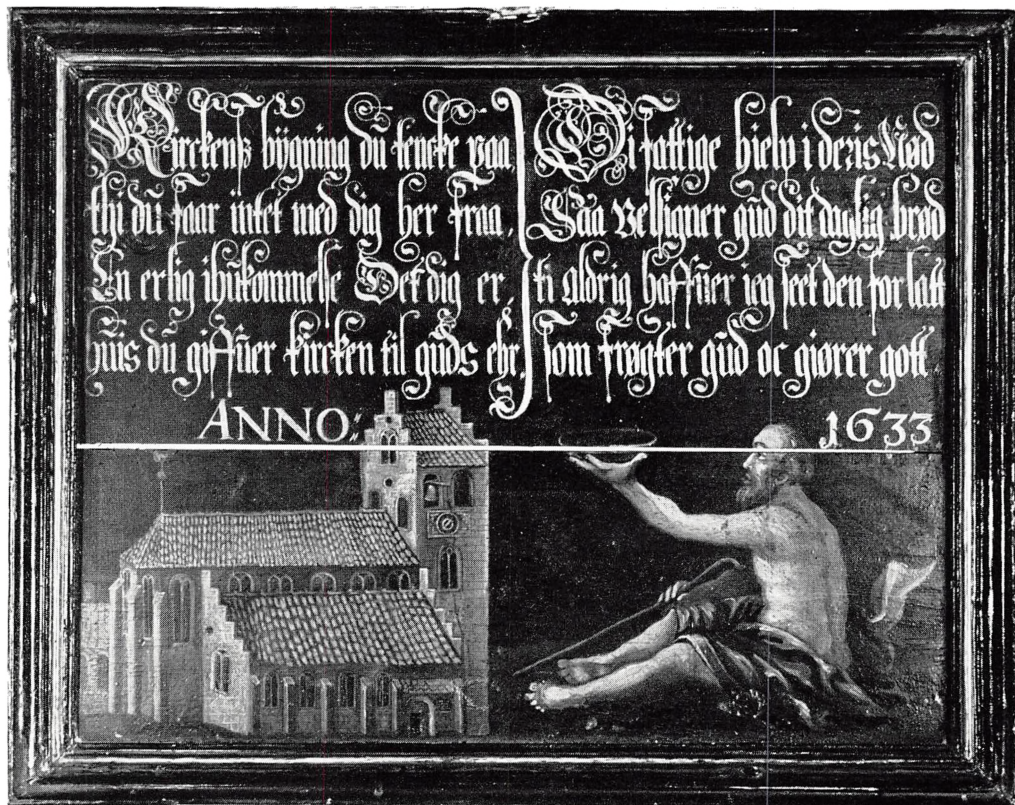 Kirckens bÿgning dŭ tencke paa,
thi dŭ faar intet med dig her fraa,
En erlig ihŭkommelse Det dig er,
hŭis dŭ giffŭer kircken til gŭds ehr,
Di fattige hielp i deris Nød
Saa velsigner gŭd dit daglig brød
ti aldrig haffŭer ieg seet den forlatt
som frøgter gŭd oc giører gott.
ANNO: 1633